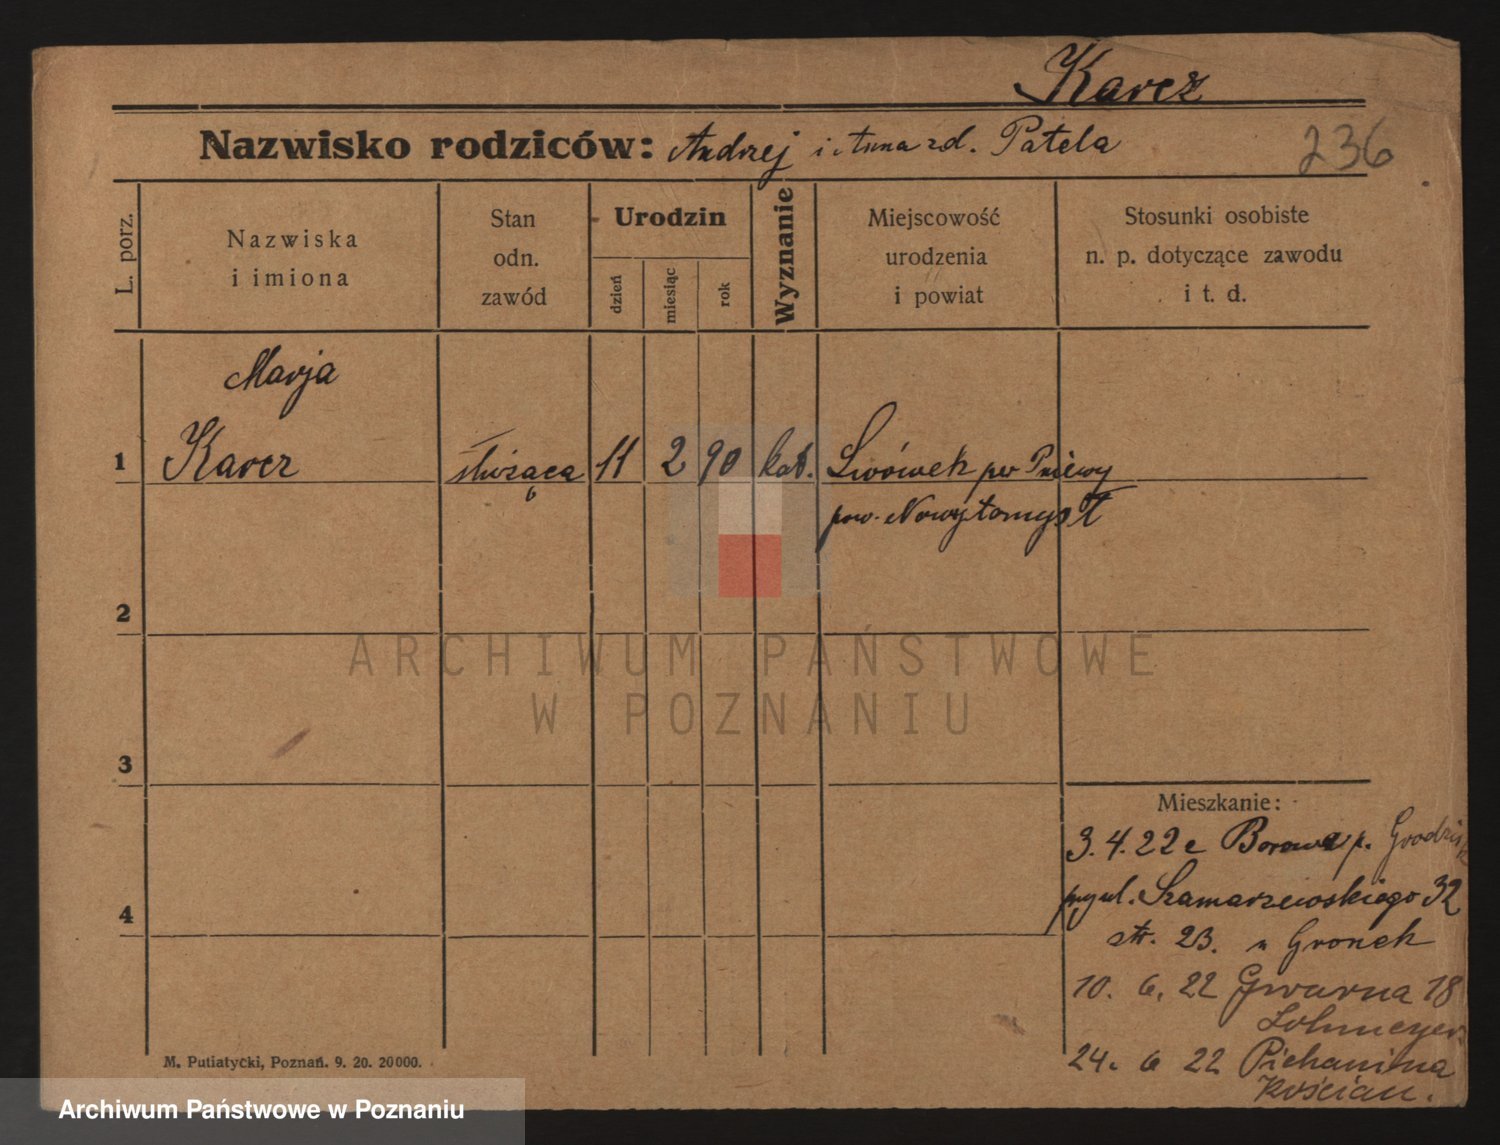 Karcz
Nazwisko rodziców: Andrzej i Anna zd. Patela
236
L. porz.
Nazwiska
i imiona
Stan
odn.
zawód
Urodzin
dzień
miesiąc
rok
Wyznanie
Miejscowość
urodzenia
i powiat
Stosunki osobiste
n. p. dotyczące zawodu
i t. d.
Marja
1 Karcz służąca 11 2 90 kat. Lwówek per Pniewy
pow. Nowytomysł
2
ARCHIWUM PAŃSTWOWE
W POZNANIU
3
Mieszkanie:
3. 4. 22 z Borowa p. Grodzisk
ul. Szamarzewskiego 32
str. 23. u Gronek
4
10. 6. 22 Gwarna 18
Lohmeyer
24. 6 22
Kościan.
M. Putiatycki, Poznań. 9. 20. 20000.
Archiwum Państwowe w Poznaniu